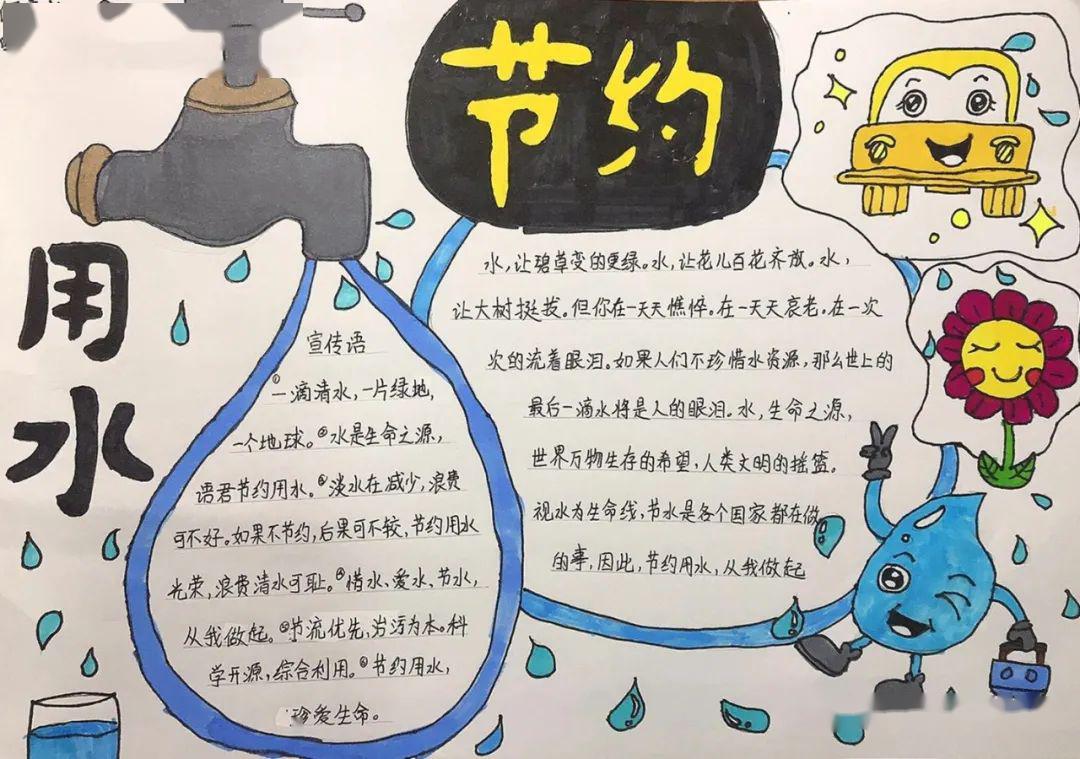 节约
用水
宣传语
①一滴清水,一片绿地,
一个地球。②水是生命之源,
语君节约用水。③淡水在减少,浪费
可不好。如果不节约,后果可不较,节约用水
光荣,浪费清水可耻。④惜水、爱水、节水,
从我做起。⑤节流优先,治污为本。科
学开源,综合利用。⑥节约用水,
珍爱生命。
水,让碧草变的更绿。水,让花儿百花齐放。水,
让大树挺拔。但你在一天天憔悴。在一天天哀老。在一次
次的流着眼泪。如果人们不珍惜水资源,那么世上的
最后一滴水将是人的眼泪。水,生命之源,
世界万物生存的希望,人类文明的摇篮。
视水为生命线,节水是各个国家都在做
的事,因此,节约用水,从我做起